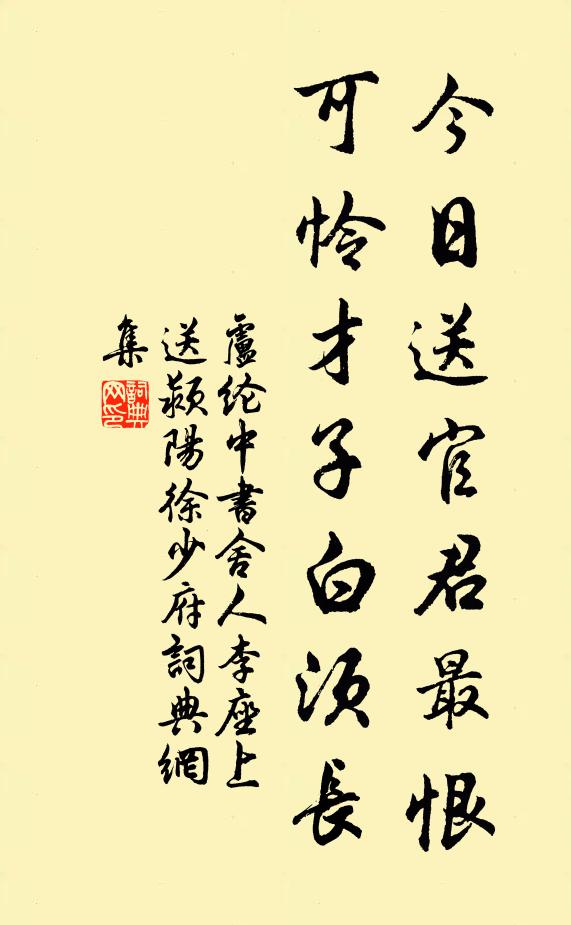 今日送官君最恨
可怜才子白须長
盧纶中書舍人李座上
送颍陽徐少府詞典網
集
詞典网印